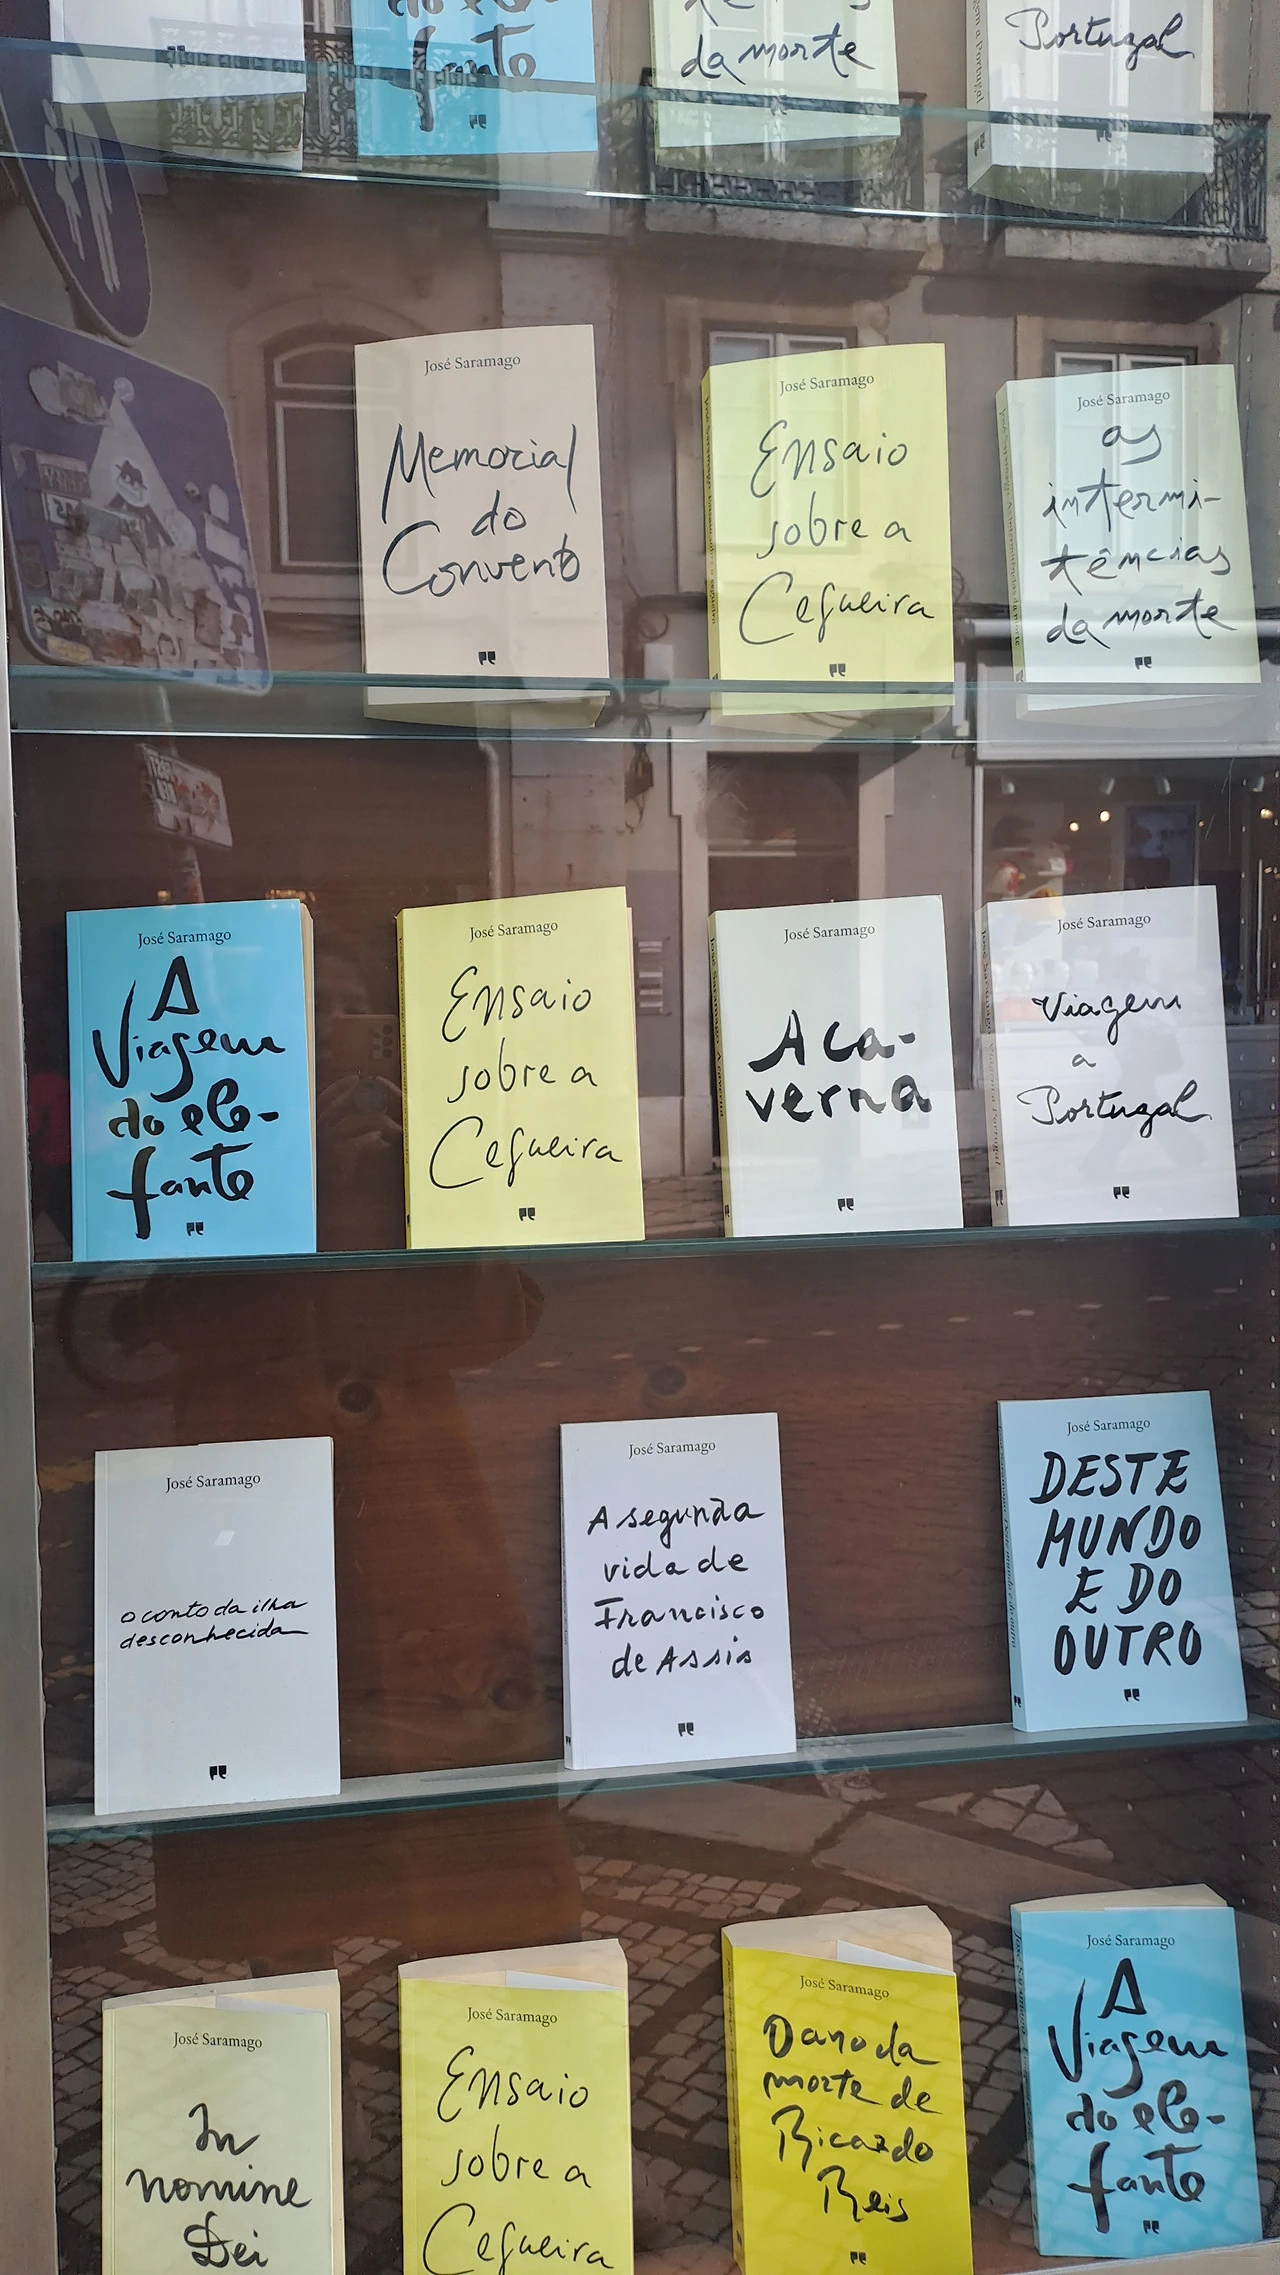 do ele-
fante
da morte
Portugal
José Saramago
Memorial
do
Convento
José Saramago
Ensaio
sobre a
Cegueira
José Saramago
as
intermi-
tências
da morte
José Saramago
A
Viagem
do ele-
fante
José Saramago
Ensaio
sobre a
Cegueira
José Saramago
A ca-
verna
José Saramago
Viagem
a
Portugal
José Saramago
o conto da ilha
desconhecida
José Saramago
A segunda
vida de
Francisco
de Assis
José Saramago
DESTE
MUNDO
E DO
OUTRO
José Saramago
In
nomine
Dei
José Saramago
Ensaio
sobre a
Cegueira
José Saramago
O ano da
morte de
Ricardo
Reis
José Saramago
A
Viagem
do ele-
fante